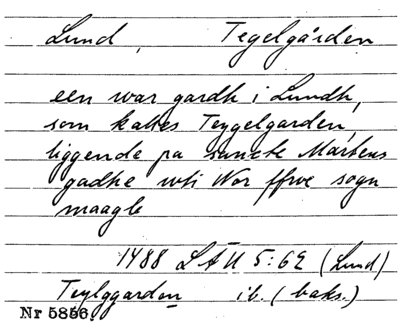 Lund, Tegelgården
een war gardh i Lundh,
som kalles Teygelgarden,
liggende pa sancte Martens
gadhe uti Wor ffrwe sogn
maagle
1488 LÄU 5:62 (Lund)
Teylggarden ib. (baks.)
Nr 5856.